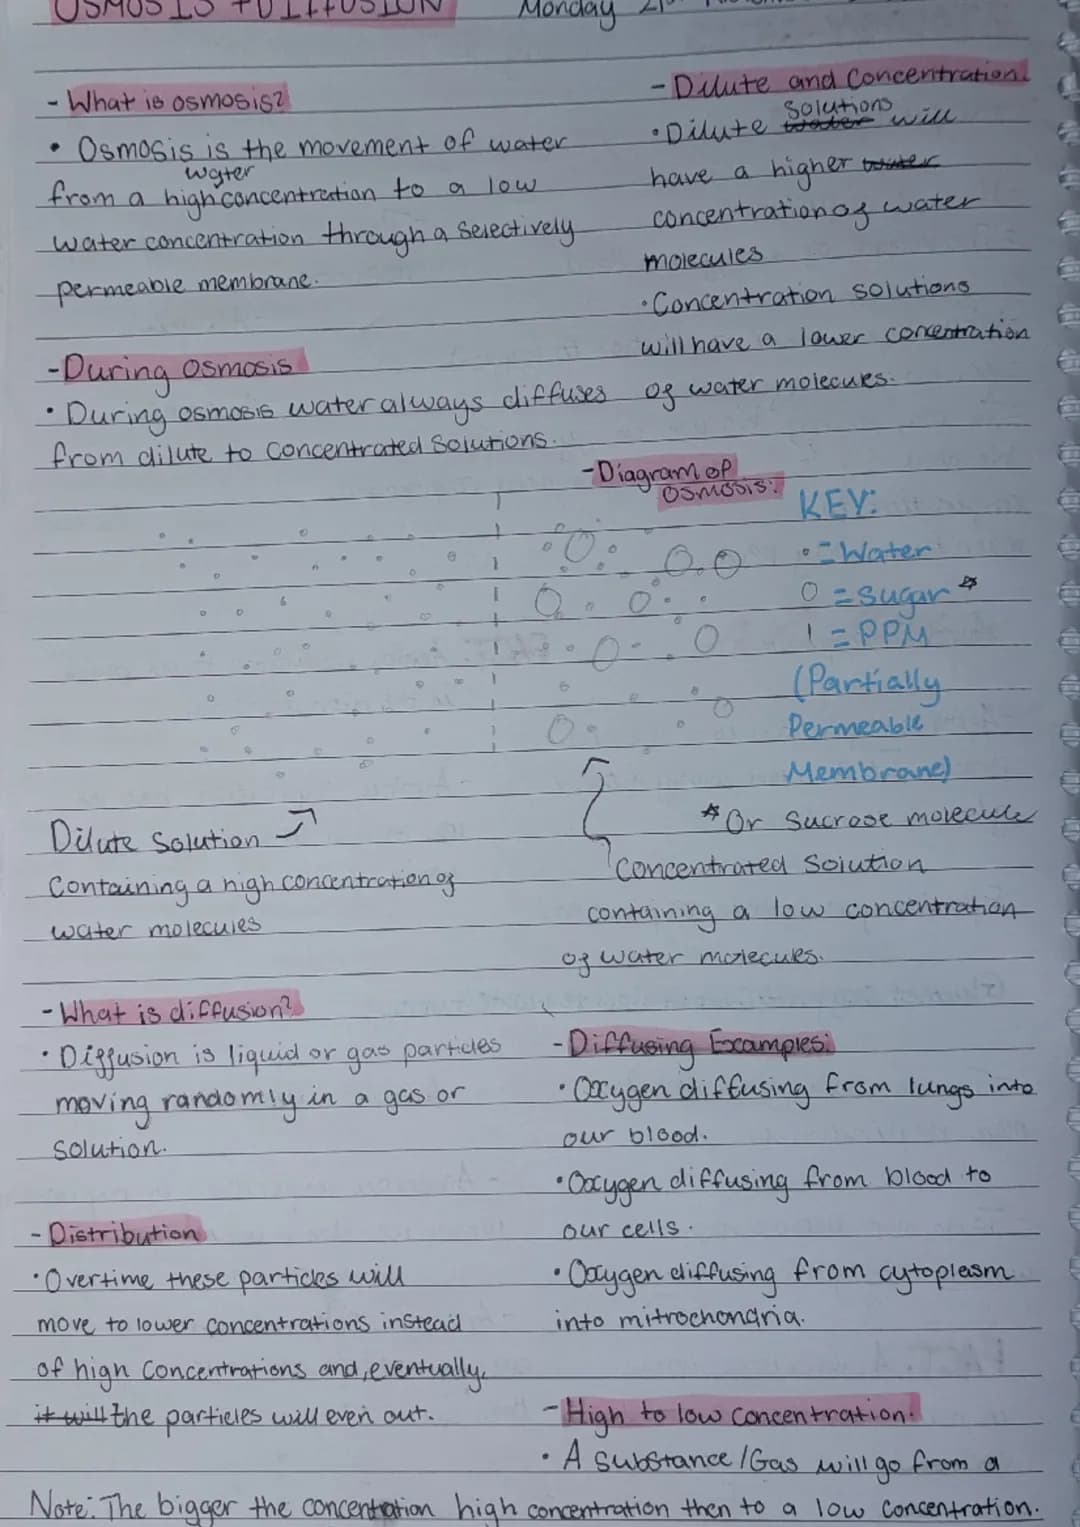 OSMOSIS + DIFFUSION
Monday 21st
- What is osmosis?
• Osmosis is the movement of water
water
from a high concentration to a low
water concentration through a selectively
permeable membrane.
- During osmosis
• During osmosis water always diffuses
from dilute to concentrated solutions.
- Dilute and Concentration
solutions
• Dilute water will
have a higher water
concentration of water
molecules
• Concentration solutions
will have a lower concentration
of water molecules.
- Diagram of
osmosis:
KEY:
∘ = Water
O = Sugar *
| = PPM
(Partially
Permeable
Membrane)
* Or Sucrose molecule
Dilute Solution
Containing a high concentration of
water molecules
Concentrated Solution
containing a low concentration
of water molecules.
- What is diffusion?
• Diffusion is liquid or gas particles
moving randomly in a gas or
solution.
- Distribution
• Overtime these particles will
move to lower concentrations instead
of high concentrations and, eventually,
it will the particles will even out.
- Diffusing Examples:
• Oxygen diffusing from lungs into
our blood.
• Oxygen diffusing from blood to
our cells.
• Oxygen diffusing from cytoplasm
into mitrochondria.
- High to low concentration.
• A substance/Gas will go from a
high concentration then to a low concentration.
Note: The bigger the concentration